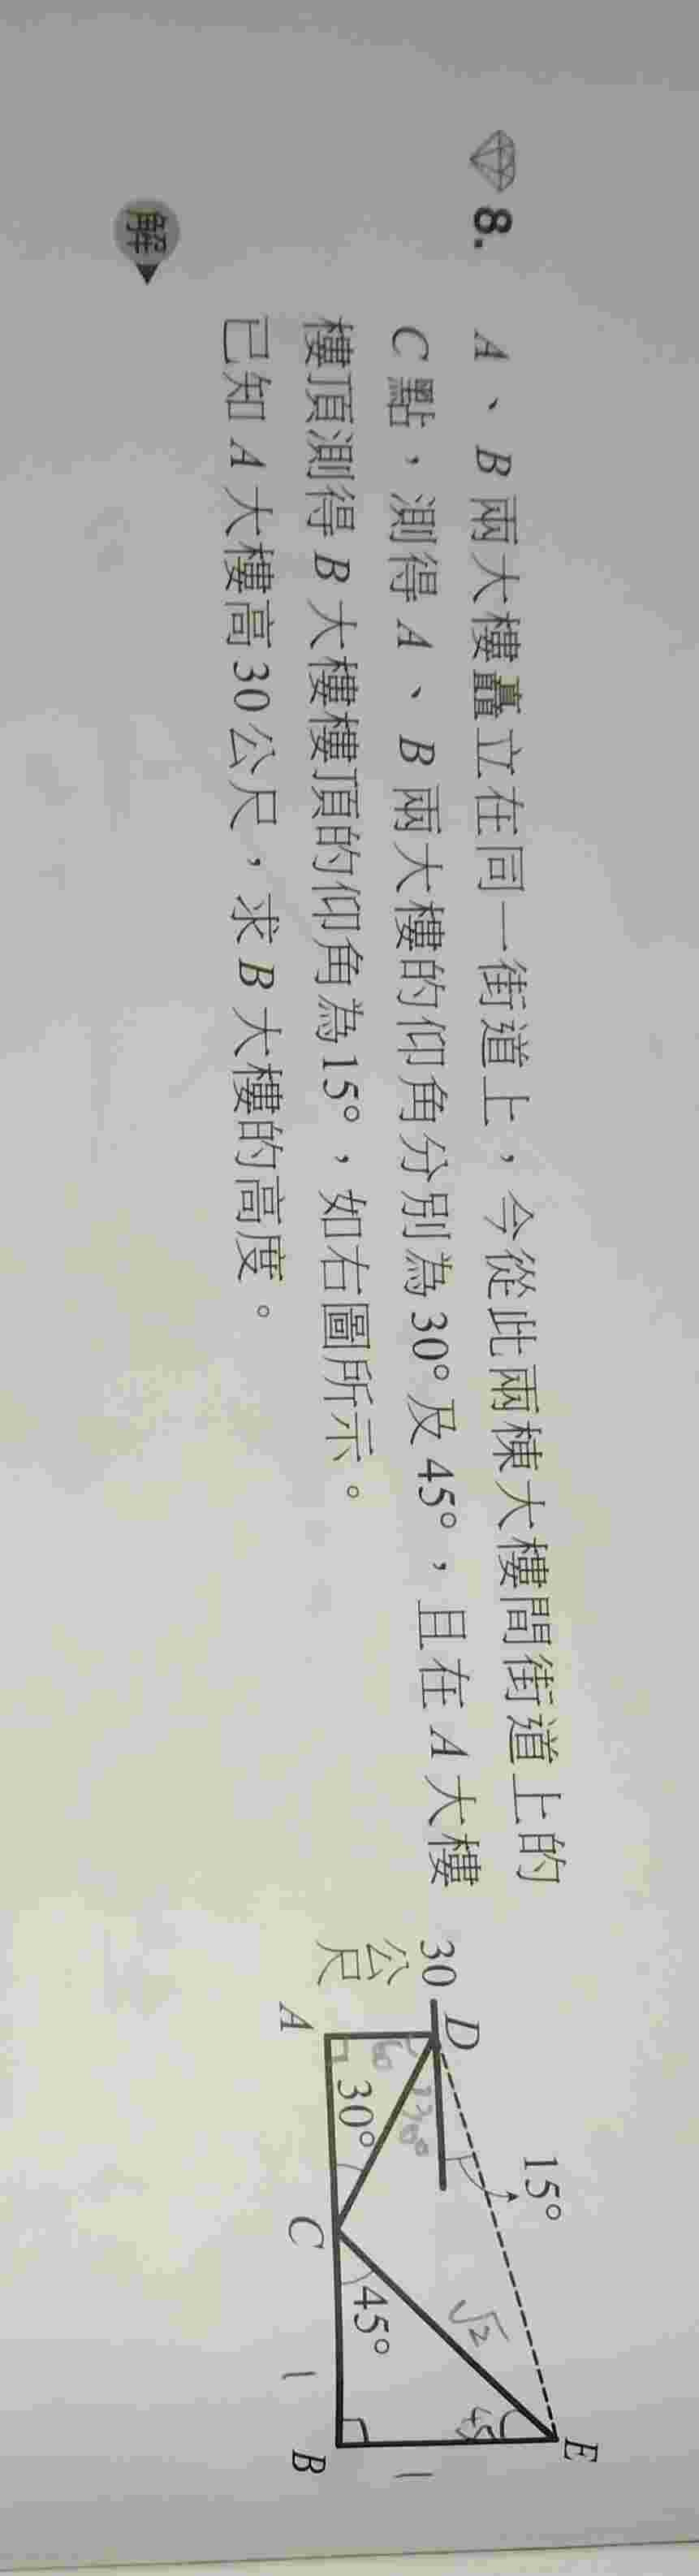 8. A、B兩大樓矗立在同一街道上，今從此兩棟大樓間街道上的
C點，測得A、B兩大樓的仰角分別為30°及45°，且在A大樓
樓頂測得B大樓樓頂的仰角為15°，如右圖所示。
已知A大樓高30公尺，求B大樓的高度。
解
15°
E
D
30
公尺
30°
45°
A
C
B
√2
45
60
30°
1
1